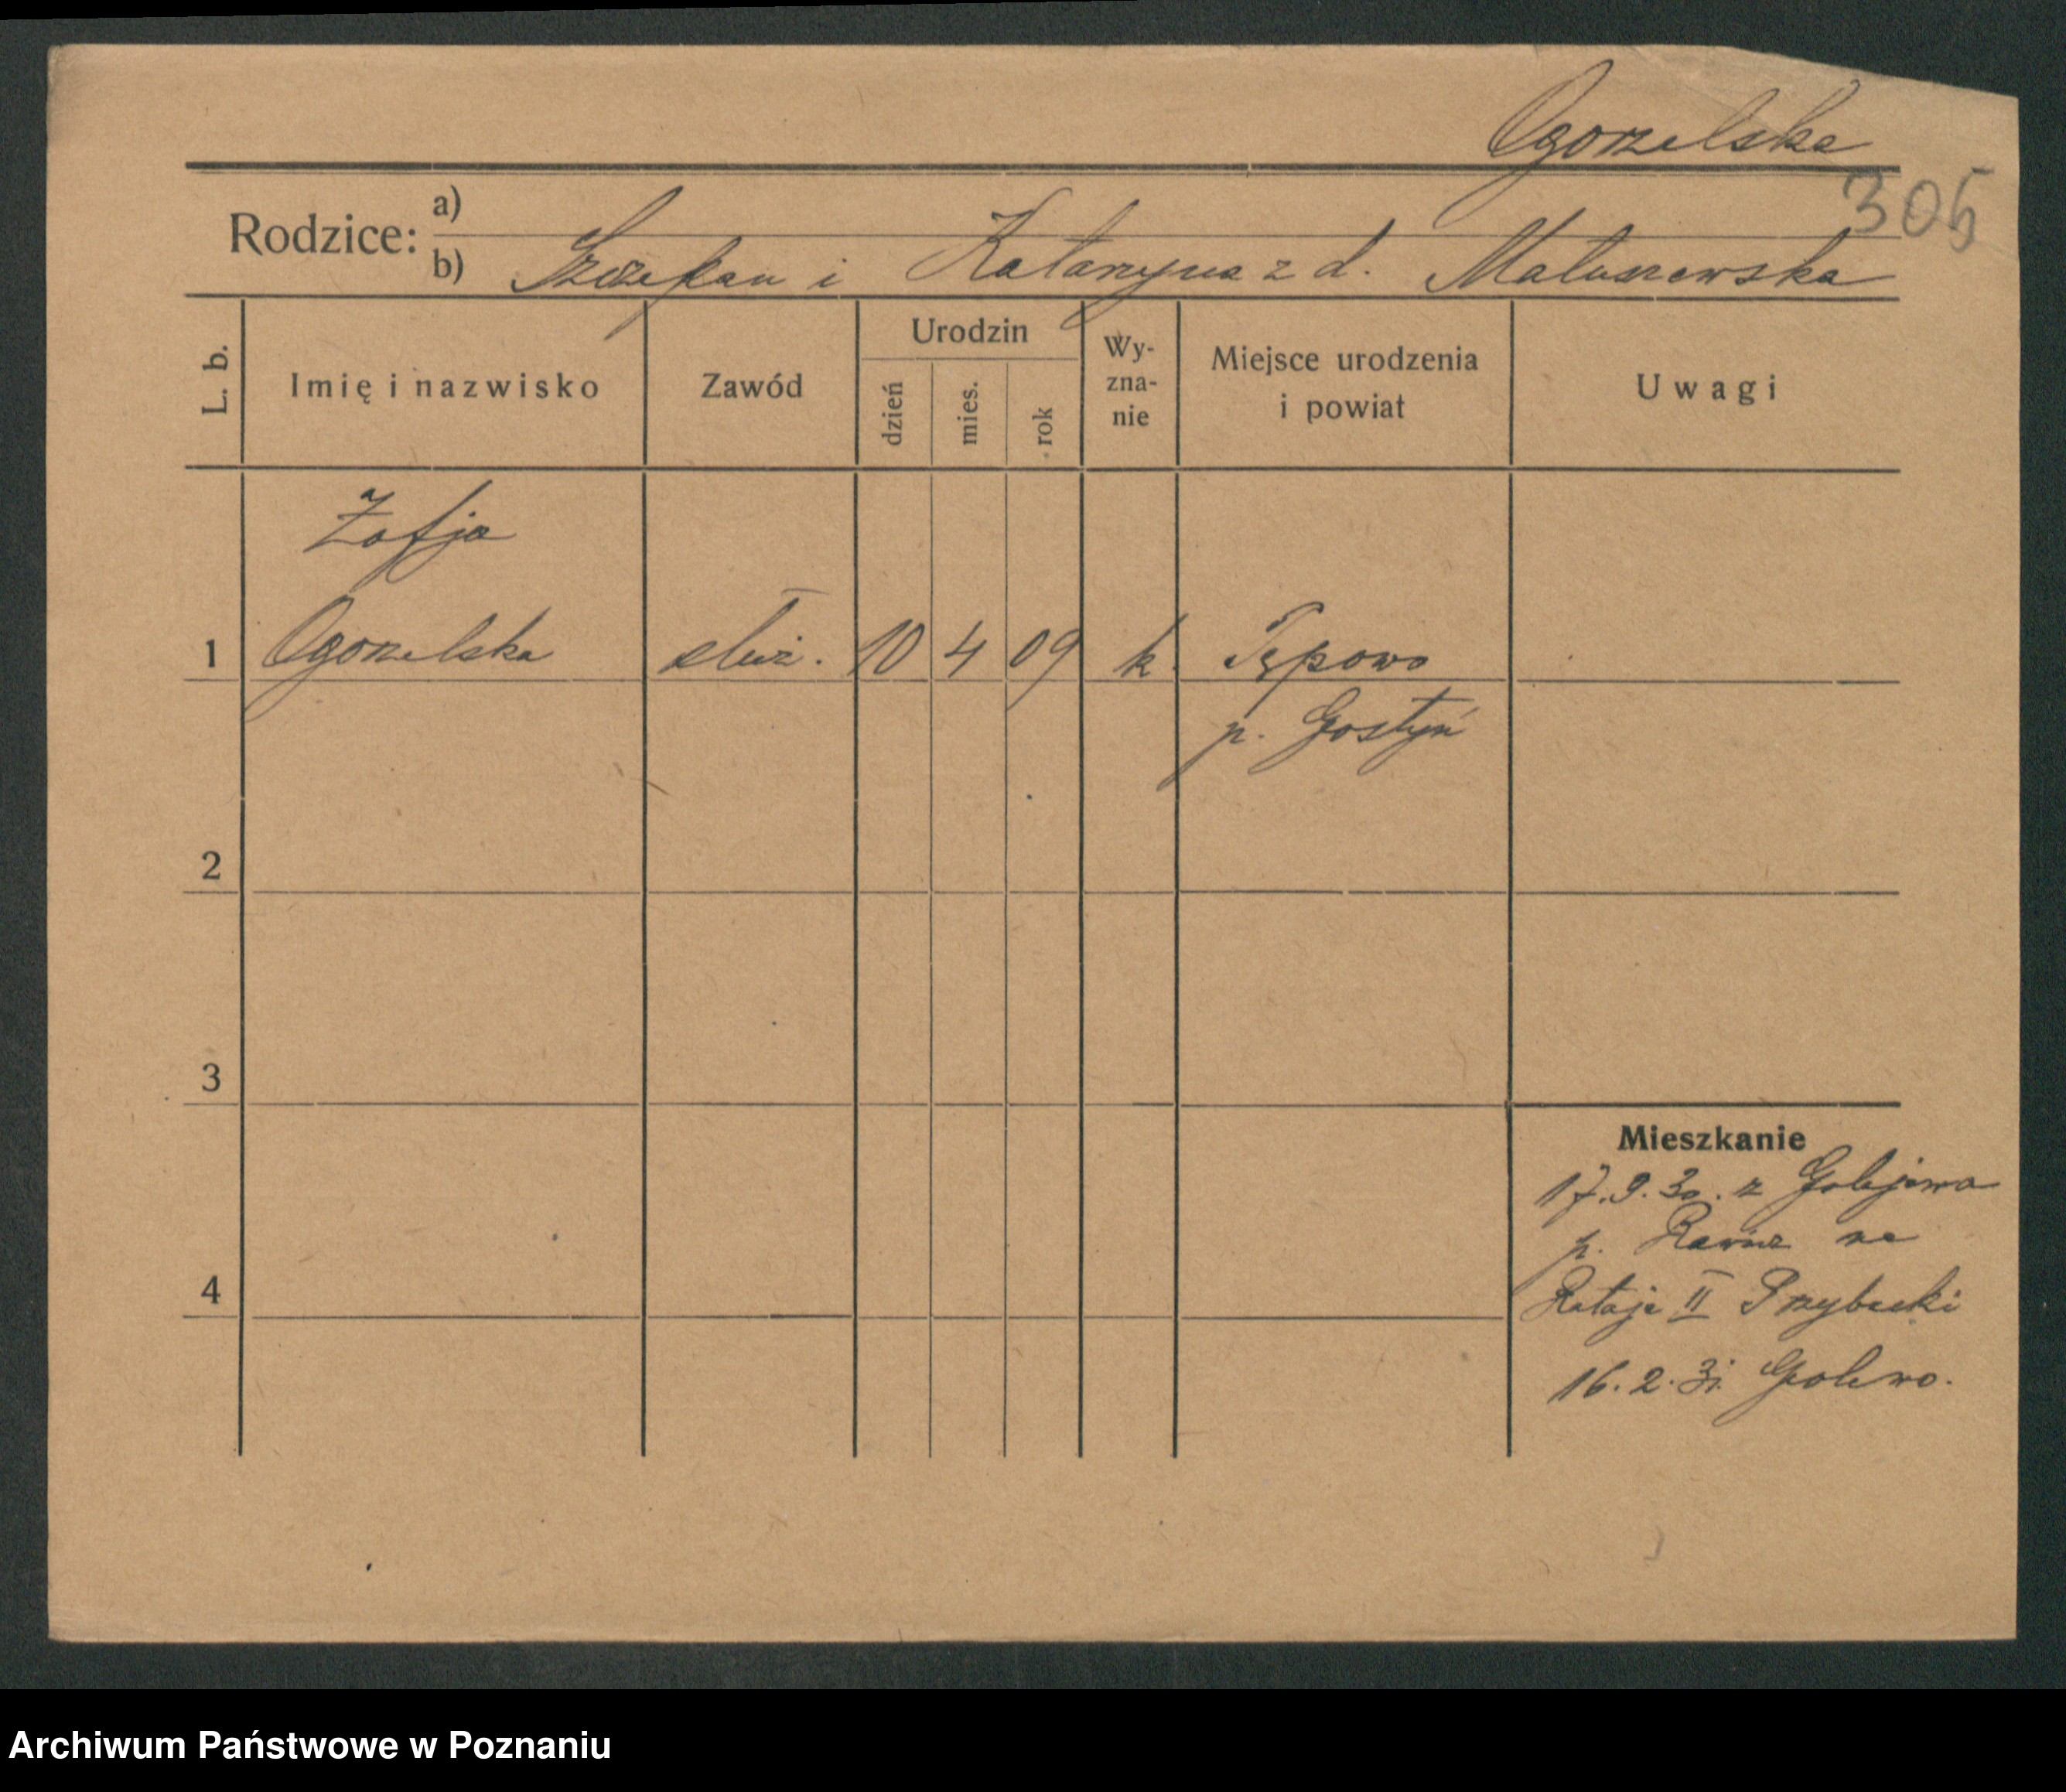 Ogorzelska
305
Rodzice: a)
b) Szczepan i Katarzyna z d. Matuszewska
L. b.
Imię i nazwisko
Zawód
Urodzin
dzień
mies.
rok
Wy-
zna-
nie
Miejsce urodzenia
i powiat
Uwagi
Zofja
1 Ogorzelska służ. 10 4 09 k. Pępowo
p. Gostyń
2
3
4
Mieszkanie
17.9.30. z Golejewa
p. Rawicz na
Rataje II Przybecki
16.2.31. Golewo.
Archiwum Państwowe w Poznaniu